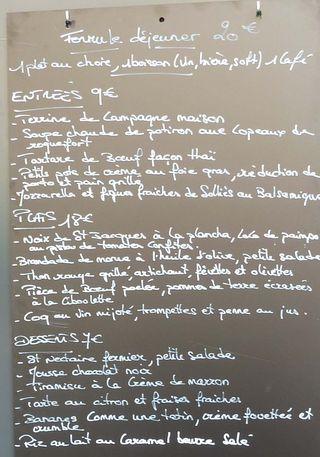 Formule déjeuner 20€
1 plat au choix, 1 boisson (vin, bière, soft) 1 Café
ENTREES 9€
- Terrine de Campagne maison
- Soupe chaude de potiron aux Copeaux de
roquefort
- Tartare de Bœuf façon thaï
- Petits pots de crème au foie gras, réduction de
porto et pain grillé
- Mozzarella et figues fraiches de Solliès au Balsamique
PLATS 18€
- Noix de St Jacques à la plancha,
au pistou de tomates confites
- Brandade de morue à l'huile d'olive, petite salade
- Thon rouge grillé, artichaut, févettes et olivettes
- Pièce de Bœuf poêlée, pommes de terre écrasées
à la Ciboulette
- Coq au vin mijoté, trompettes et penne au jus.
DESSERTS 7€
- St Nectaire fermier, petite salade
- Mousse chocolat noir
- Tiramisu à la Crème de marron
- Tarte au citron et fraises fraiches
- Bananes Comme une tatin, crème fouettée et
crumble
- Riz au lait au Caramel beurre Salé